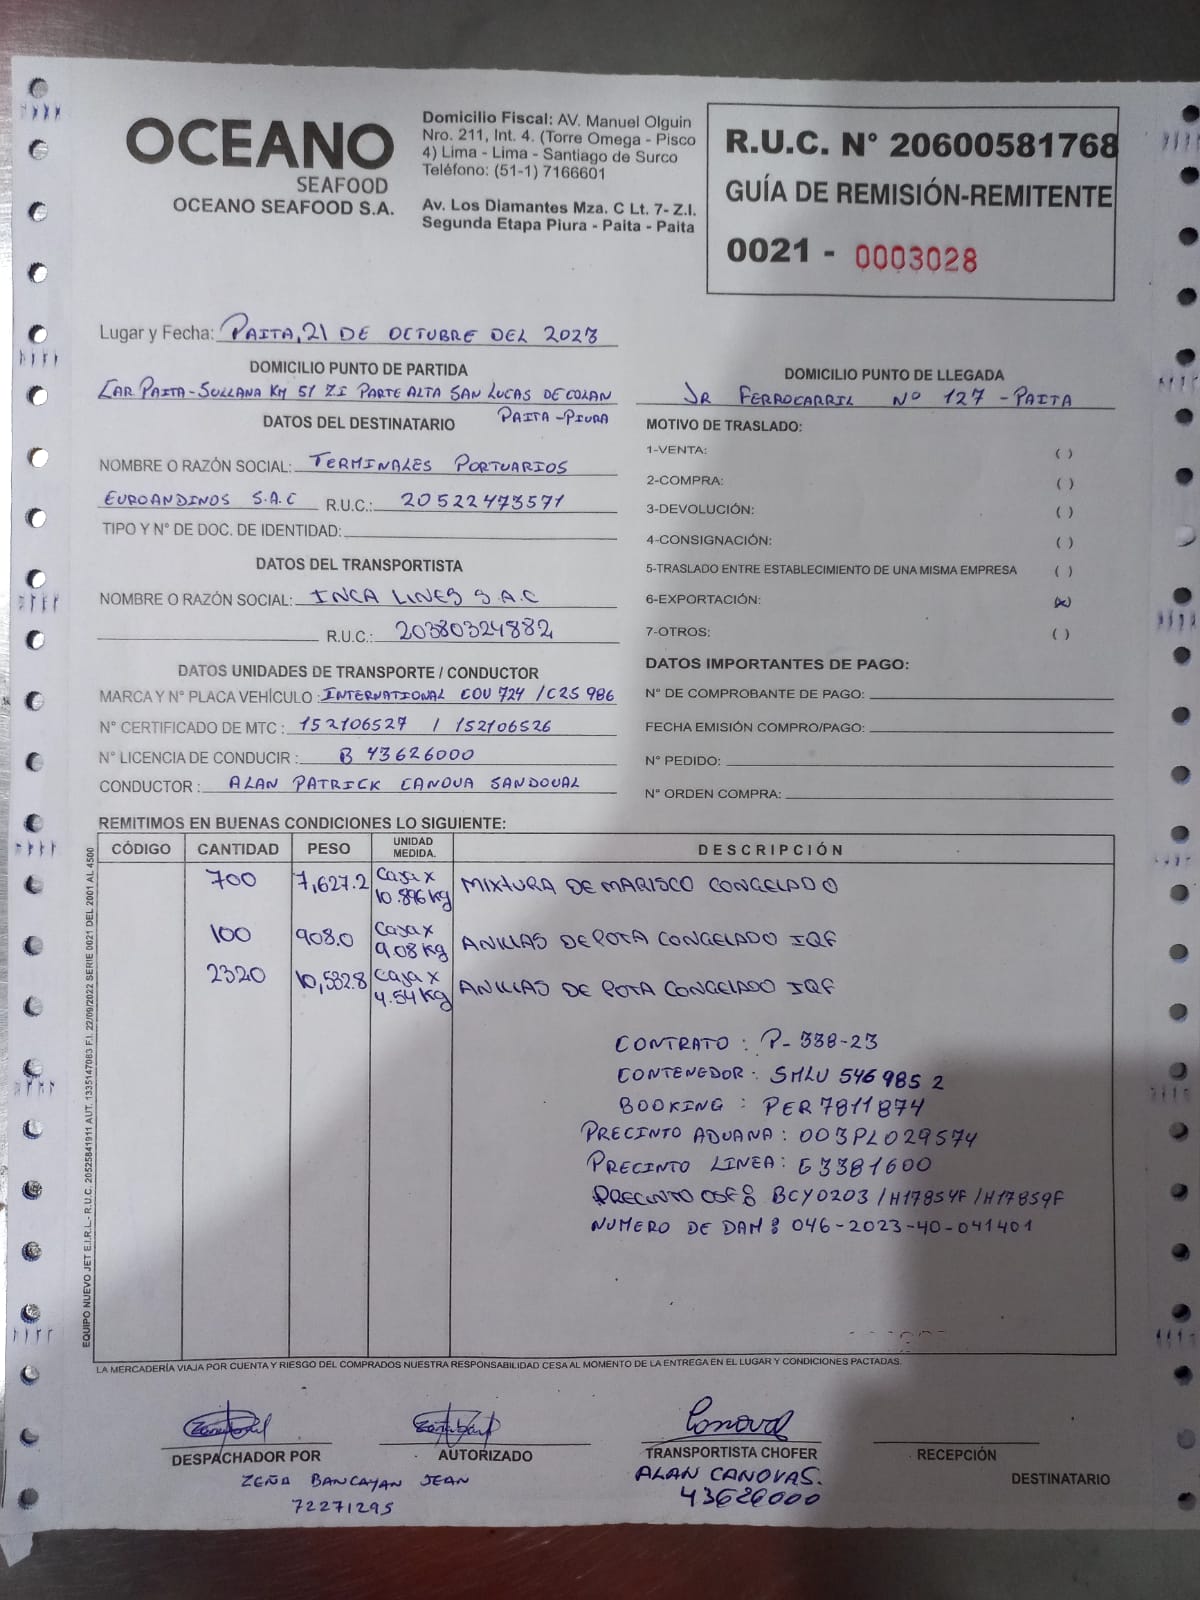 OCEANO
SEAFOOD
OCEANO SEAFOOD S.A.
Domicilio Fiscal: AV. Manuel Olguin
Nro. 211, Int. 4. (Torre Omega - Pisco
4) Lima - Lima - Santiago de Surco
Teléfono: (51-1) 7166601
Av. Los Diamantes Mza. C Lt. 7- Z.I.
Segunda Etapa Piura - Paita - Paita
R.U.C. N° 20600581768
GUÍA DE REMISIÓN-REMITENTE
0021 - 0003028
Lugar y Fecha: PAITA, 21 DE OCTUBRE DEL 2023
DOMICILIO PUNTO DE PARTIDA
CAR. PAITA-SULLANA KM 51 ZI PARTE ALTA SAN LUCAS DE COLAN
PAITA-PIURA
DOMICILIO PUNTO DE LLEGADA
JR FERROCARRIL N° 127 - PAITA
DATOS DEL DESTINATARIO
NOMBRE O RAZÓN SOCIAL: TERMINALES PORTUARIOS
EUROANDINOS S.A.C R.U.C.: 20522473571
TIPO Y N° DE DOC. DE IDENTIDAD:
DATOS DEL TRANSPORTISTA
NOMBRE O RAZÓN SOCIAL: INCA LINES S.A.C
R.U.C.: 20380324882
DATOS UNIDADES DE TRANSPORTE / CONDUCTOR
MARCA Y N° PLACA VEHÍCULO : INTERNATIONAL COU 724 / C2S 986
N° CERTIFICADO DE MTC : 152106527 / 152106526
N° LICENCIA DE CONDUCIR : B 43626000
CONDUCTOR : ALAN PATRICK CANOVA SANDOVAL
MOTIVO DE TRASLADO:
1-VENTA: ( )
2-COMPRA: ( )
3-DEVOLUCIÓN: ( )
4-CONSIGNACIÓN: ( )
5-TRASLADO ENTRE ESTABLECIMIENTO DE UNA MISMA EMPRESA ( )
6-EXPORTACIÓN: (x)
7-OTROS: ( )
DATOS IMPORTANTES DE PAGO:
N° DE COMPROBANTE DE PAGO:
FECHA EMISIÓN COMPRO/PAGO:
N° PEDIDO:
N° ORDEN COMPRA:
REMITIMOS EN BUENAS CONDICIONES LO SIGUIENTE:
CÓDIGO CANTIDAD PESO UNIDAD MEDIDA. DESCRIPCIÓN
700 7,627.2 Caja x 10.896 kg MIXTURA DE MARISCO CONGELADO
100 908.0 Caja x 9.08 kg ANILLAS DE POTA CONGELADO IQF
2320 10,532.8 Caja x 4.54 kg ANILLAS DE POTA CONGELADO IQF
CONTRATO : P-338-23
CONTENEDOR: SMLU 546 985 2
BOOKING : PER7811874
PRECINTO ADUANA: 003PL029574
PRECINTO LINEA: G3381600
PRECINTO OSF: BCY0203 /H17854F /H17859F
NUMERO DE DAM: 046-2023-40-041401
EQUIPO NUEVO JET E.I.R.L.- R.U.C. 20525841911 AUT. 1335147083 F.I. 22/09/2022 SERIE 0021 DEL 2001 AL 4500
LA MERCADERÍA VIAJA POR CUENTA Y RIESGO DEL COMPRADOS NUESTRA RESPONSABILIDAD CESA AL MOMENTO DE LA ENTREGA EN EL LUGAR Y CONDICIONES PACTADAS.
DESPACHADOR POR
ZEÑA BANCAYAN JEAN
72271295
AUTORIZADO
Canova
TRANSPORTISTA CHOFER
ALAN CANOVAS.
43626000
RECEPCIÓN
DESTINATARIO